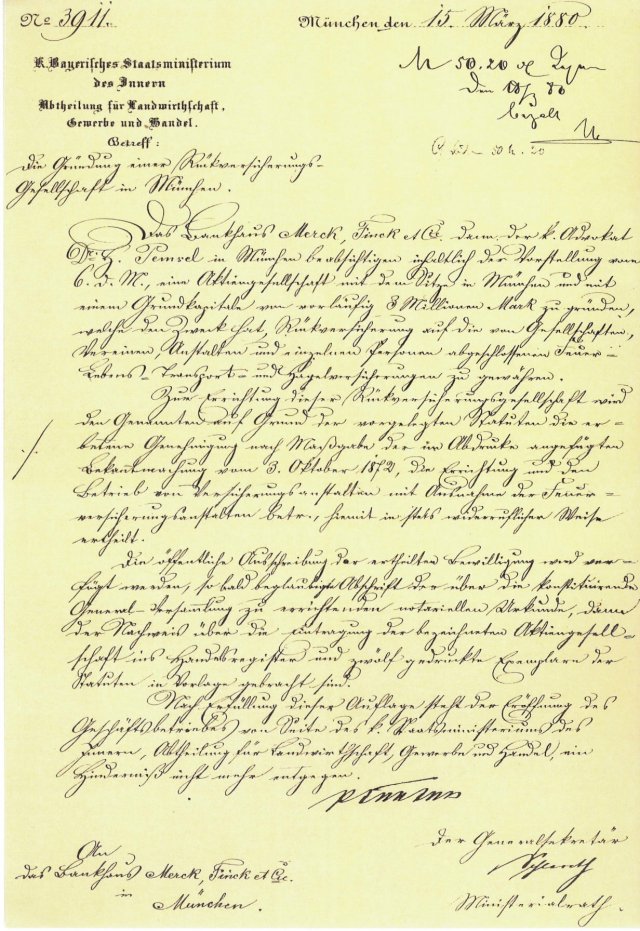 No 3911.
München den 15. März 1880.
K. Bayerisches Staatsministerium
des Innern
Abtheilung für Landwirthschaft,
Gewerbe und Handel.
Betreff:
M 50.20
den
bezalt
50 M. 20
Die Gründung einer Rückversicherungs-
Gesellschaft in München.
Das Bankhaus Merck, Finck et Cie. dann der k. Advokat
Dr. H. Pemsel in München beabsichtigen inhaltlich der Vorstellung vom
6. d. M., eine Aktiengesellschaft mit dem Sitze in München und mit
einem Grundkapitale von vorläufig 3 Millionen Mark zu gründen,
welche den Zweck hat, Rückversicherung auf die von Gesellschaften,
Vereinen, Anstalten und einzelnen Personen abgeschlossenen Feuer-
Lebens- Transport- und Hagelversicherungen zu gewähren.
Zur Errichtung dieser Rückversicherungsgesellschaft wird
den Genannten auf Grund der vorgelegten Statuten die er-
betene Genehmigung nach Maßgabe der im Abdrucke angefügten
Bekanntmachung vom 3. Oktober 1872, die Errichtung und den
Betrieb von Versicherungsanstalten mit Ausnahme der Feuer-
versicherungsanstalten betr., hiemit in stets widerruflicher Weise
ertheilt.
Die öffentliche Ausschreibung der ertheilten Bewilligung wird ver-
fügt werden, so bald beglaubigte Abschrift der über die konstituirende
General-Versammlung zu errichtenden notariellen Urkunde, dann
der Nachweis über die Eintragung der bezeichneten Aktiengesell-
schaft ins Handelsregister und zwölf gedruckte Exemplare der
Statuten in Vorlage gebracht sind.
Nach Erfüllung dieser Auflage steht der Eröffnung des
Geschäftsbetriebes von Seite des k. Staatsministeriums des
Innern, Abtheilung für Landwirthschaft, Gewerbe und Handel, ein
Hinderniß nicht mehr entgegen.
Der Generalsekretär
An
das Bankhaus Merck, Finck et Cie.
in
München.
Ministerialrath.